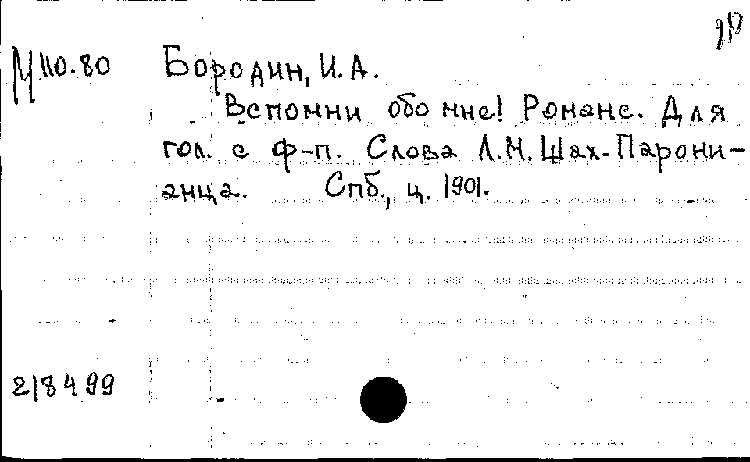 М 110.80 Бородин, И. А.
Вспомни обо мне! Романс. Для
гол. с ф-п. Слова Л.М. Шах-Парони-
анца. Спб., ц. 1901.
218499